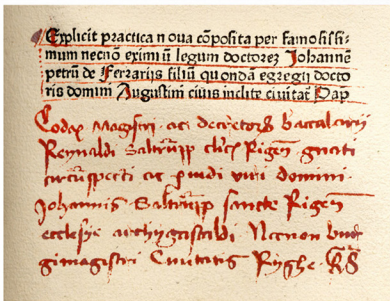 Explicit practica noua cōpo͛ita per famosissi-
mum necnō eximiū legum doctorez Johannē
petrū de Ferrarijs filiū quondā egregij docto
ris domini Augustini ciuis inclite ciuitat̄ Pap
Codex Magistri ac decretorȝ baccalarij
Reynaldi Saltrūpp Rigen̄
circūspecti ac ꝓuidi viri domini
Johannis Saltrūpp sancte Rigen̄
ecclesye archygastaldi Necnon
gimagistri Ciuitatis Ryghe